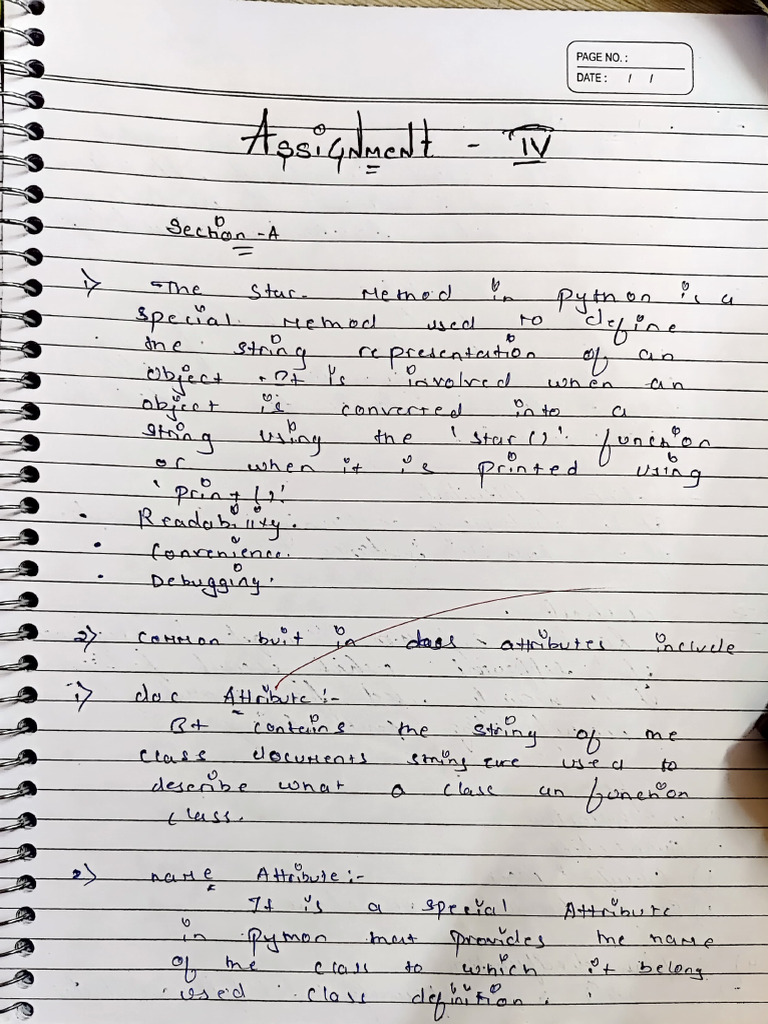 PAGE NO.:
DATE: / /
Assignment - IV
Section - A
1) The star Method in python is a
special Method used to define
the string representation of an
object. It is involved when an
object is converted into a
string using the 'star()' function
or when it is printed using
'print()'.
• Readability.
• Convenience.
• Debugging.
2) common buit in class attributes include
1) doc Attribute:-
It contains the string of the
class documents string are used to
describe what a class an function
class.
2) name Attribute:-
It is a special Attribute
in Python that provides the name
of the class to which it belong
used class definition.